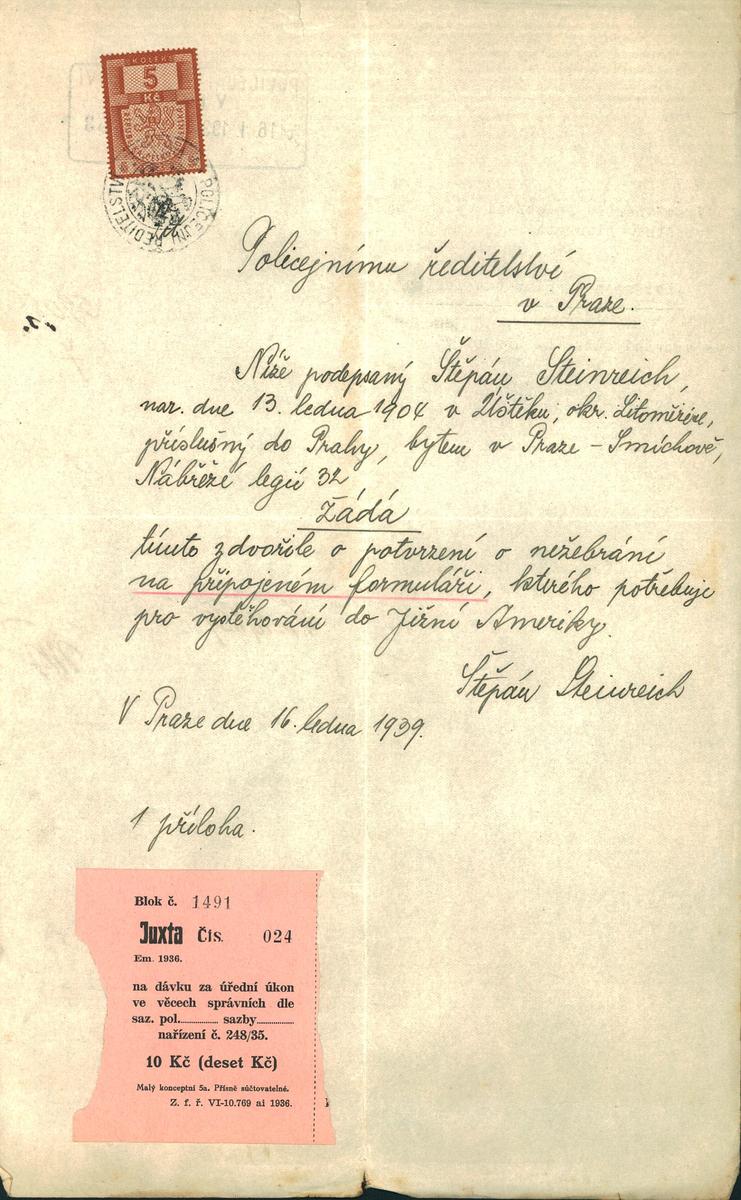 KOLEK
5
Kč
POLICEJNÍ ŘEDITELSTVÍ
Policejnímu ředitelství
v Praze.
Níže podepsaný Štěpán Steinreich,
nar. dne 13. ledna 1904 v Úštěku, okr. Litoměřice,
příslušný do Prahy, bytem v Praze - Smíchově,
Nábřeží legií 32
žádá
tímto zdvořile o potvrzení o nežebrání
na připojeném formuláři, kterého potřebuje
pro vystěhování do Jižní Ameriky.
Štěpán Steinreich
V Praze dne 16. ledna 1939.
1 příloha.
Blok č. 1491
Juxta Čís. 024
Em. 1936.
na dávku za úřední úkon
ve věcech správních dle
saz. pol.......... sazby..........
nařízení č. 248/35.
10 Kč (deset Kč)
Malý konceptní 5a. Přísně súčtovatelné.
Z. f. ř. VI-10.769 ai 1936.